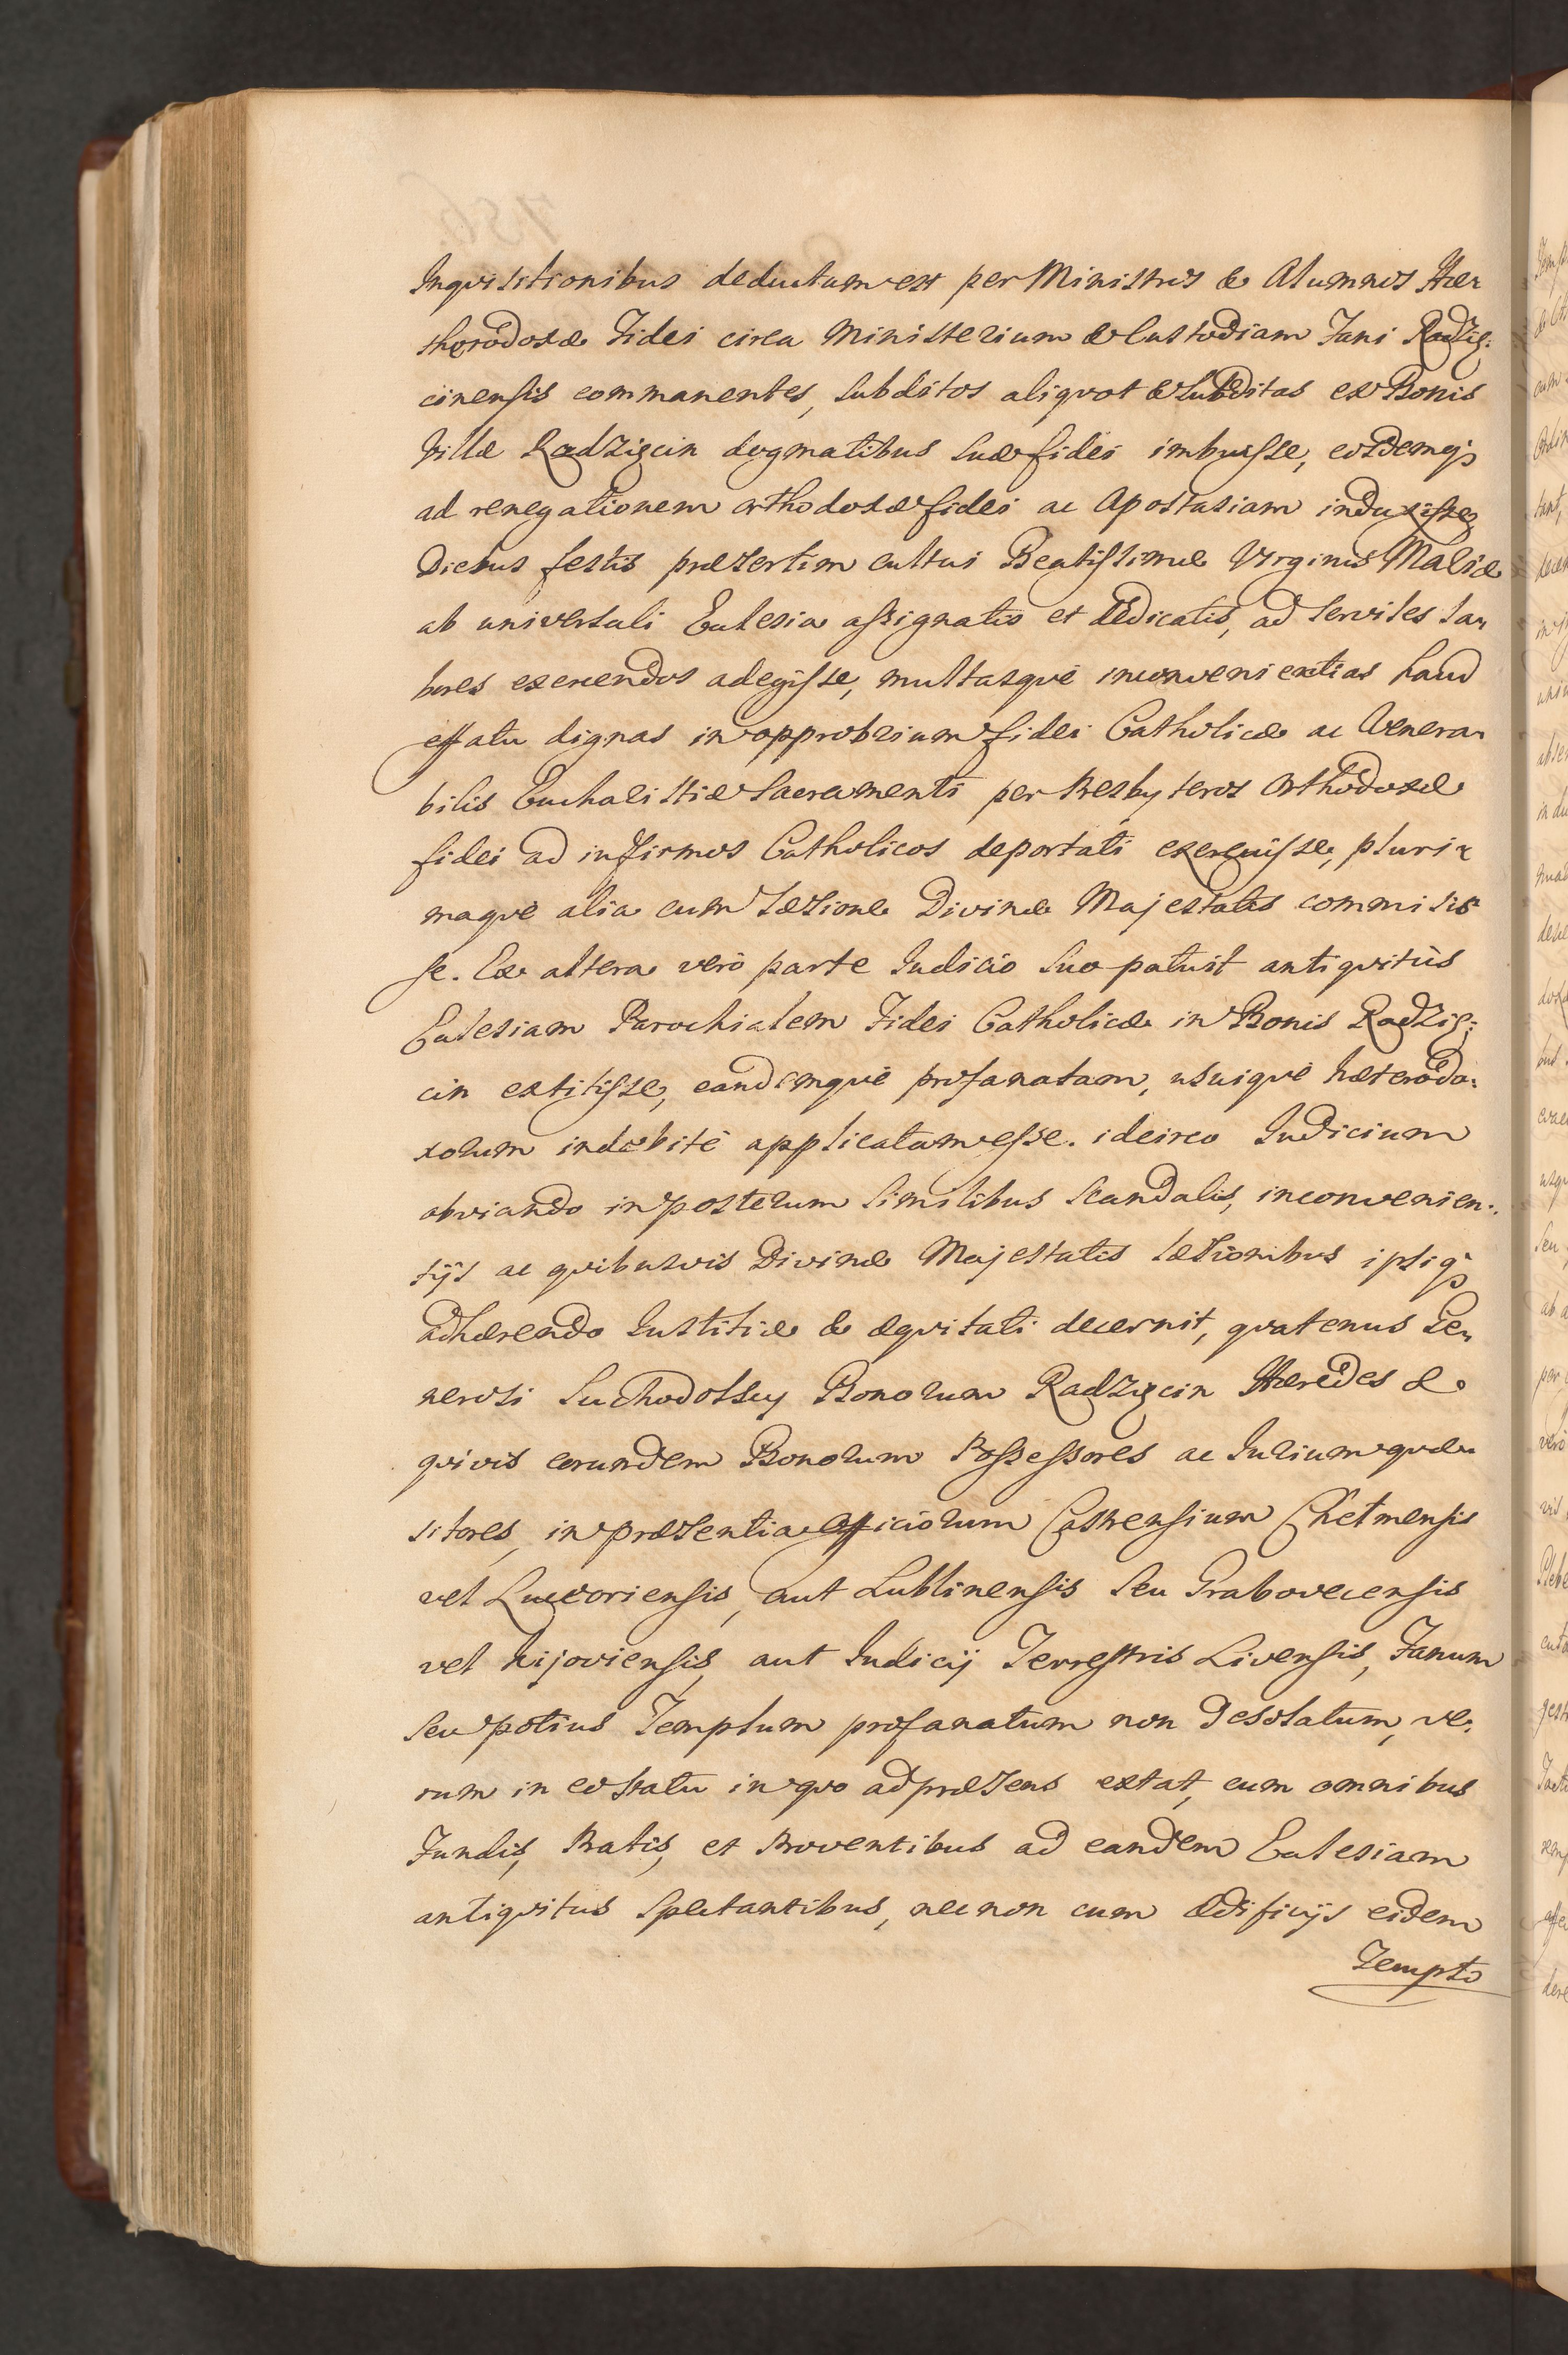 Inquisitionibus deductum est per Ministros & Alumnos Hæ-
therodoxæ Fidei circa Ministerium & Custodiam Fani Radzię:
cinensis commanentes, Subditos aliquot & Subditas ex Bonis
Villæ Radzięcin dogmatibus suæ fidei imbuisse, eosdemq;
ad renegationem orthodoxæ fidei ac Apostasiam induxisse,
Diebus festis præsertim cultui Beatissimæ Virginis Mariæ
ab universali Ecclesia assignatis et dedicatis, ad serviles la-
bores exercendos adegisse, multasquè inconvenientias haud
effatu dignas in opprobrium fidei Catholicæ ac Venera-
bilis Eucharistiæ Sacramenti per Presbyteros Orthodoxæ
fidei ad infirmos Catholicos deportati exercuisse, pluri-
maquè alia cum læsione Divinæ Majestatis commisis-
se. Ex altera verò parte Iudicio suo patuit antiquitùs
Ecclesiam Parochialem Fidei Catholicæ in Bonis Radzię:
cin extitisse, eandemquè profanatam, usuiquè hæterodo:
xorum indebitè applicatam esse. ideirco Iudicium
obviando in posterum similibus scandalis, inconvenien:
tijs ac quibusvis Divinæ Majestatis læsionibus ipsiq;
adhærendo Iustitiæ & æquitati decernit, quatenus Ge-
nerosi Suchodolscy Bonorum Radzięcin Hæredes &
quivis eorundem Bonorum Possessores ac Iurium quæ-
sitores, in præsentia Officiorum Castrensium Chełmensis
vel Luceoriensis, aut Lublinensis seu Grabovecensis
vel Kijoviensis, aut Iudicij Terrestris Livensis, Fanum
seu potius Templum profanatum non desolatum, ve:
rum in eo statu in quo ad præsens extat, cum omnibus
Fundis, Pratis, et Proventibus ad eandem Ecclesiam
antiquitus spectantibus, nec non cum ædificijs eidem
Templo